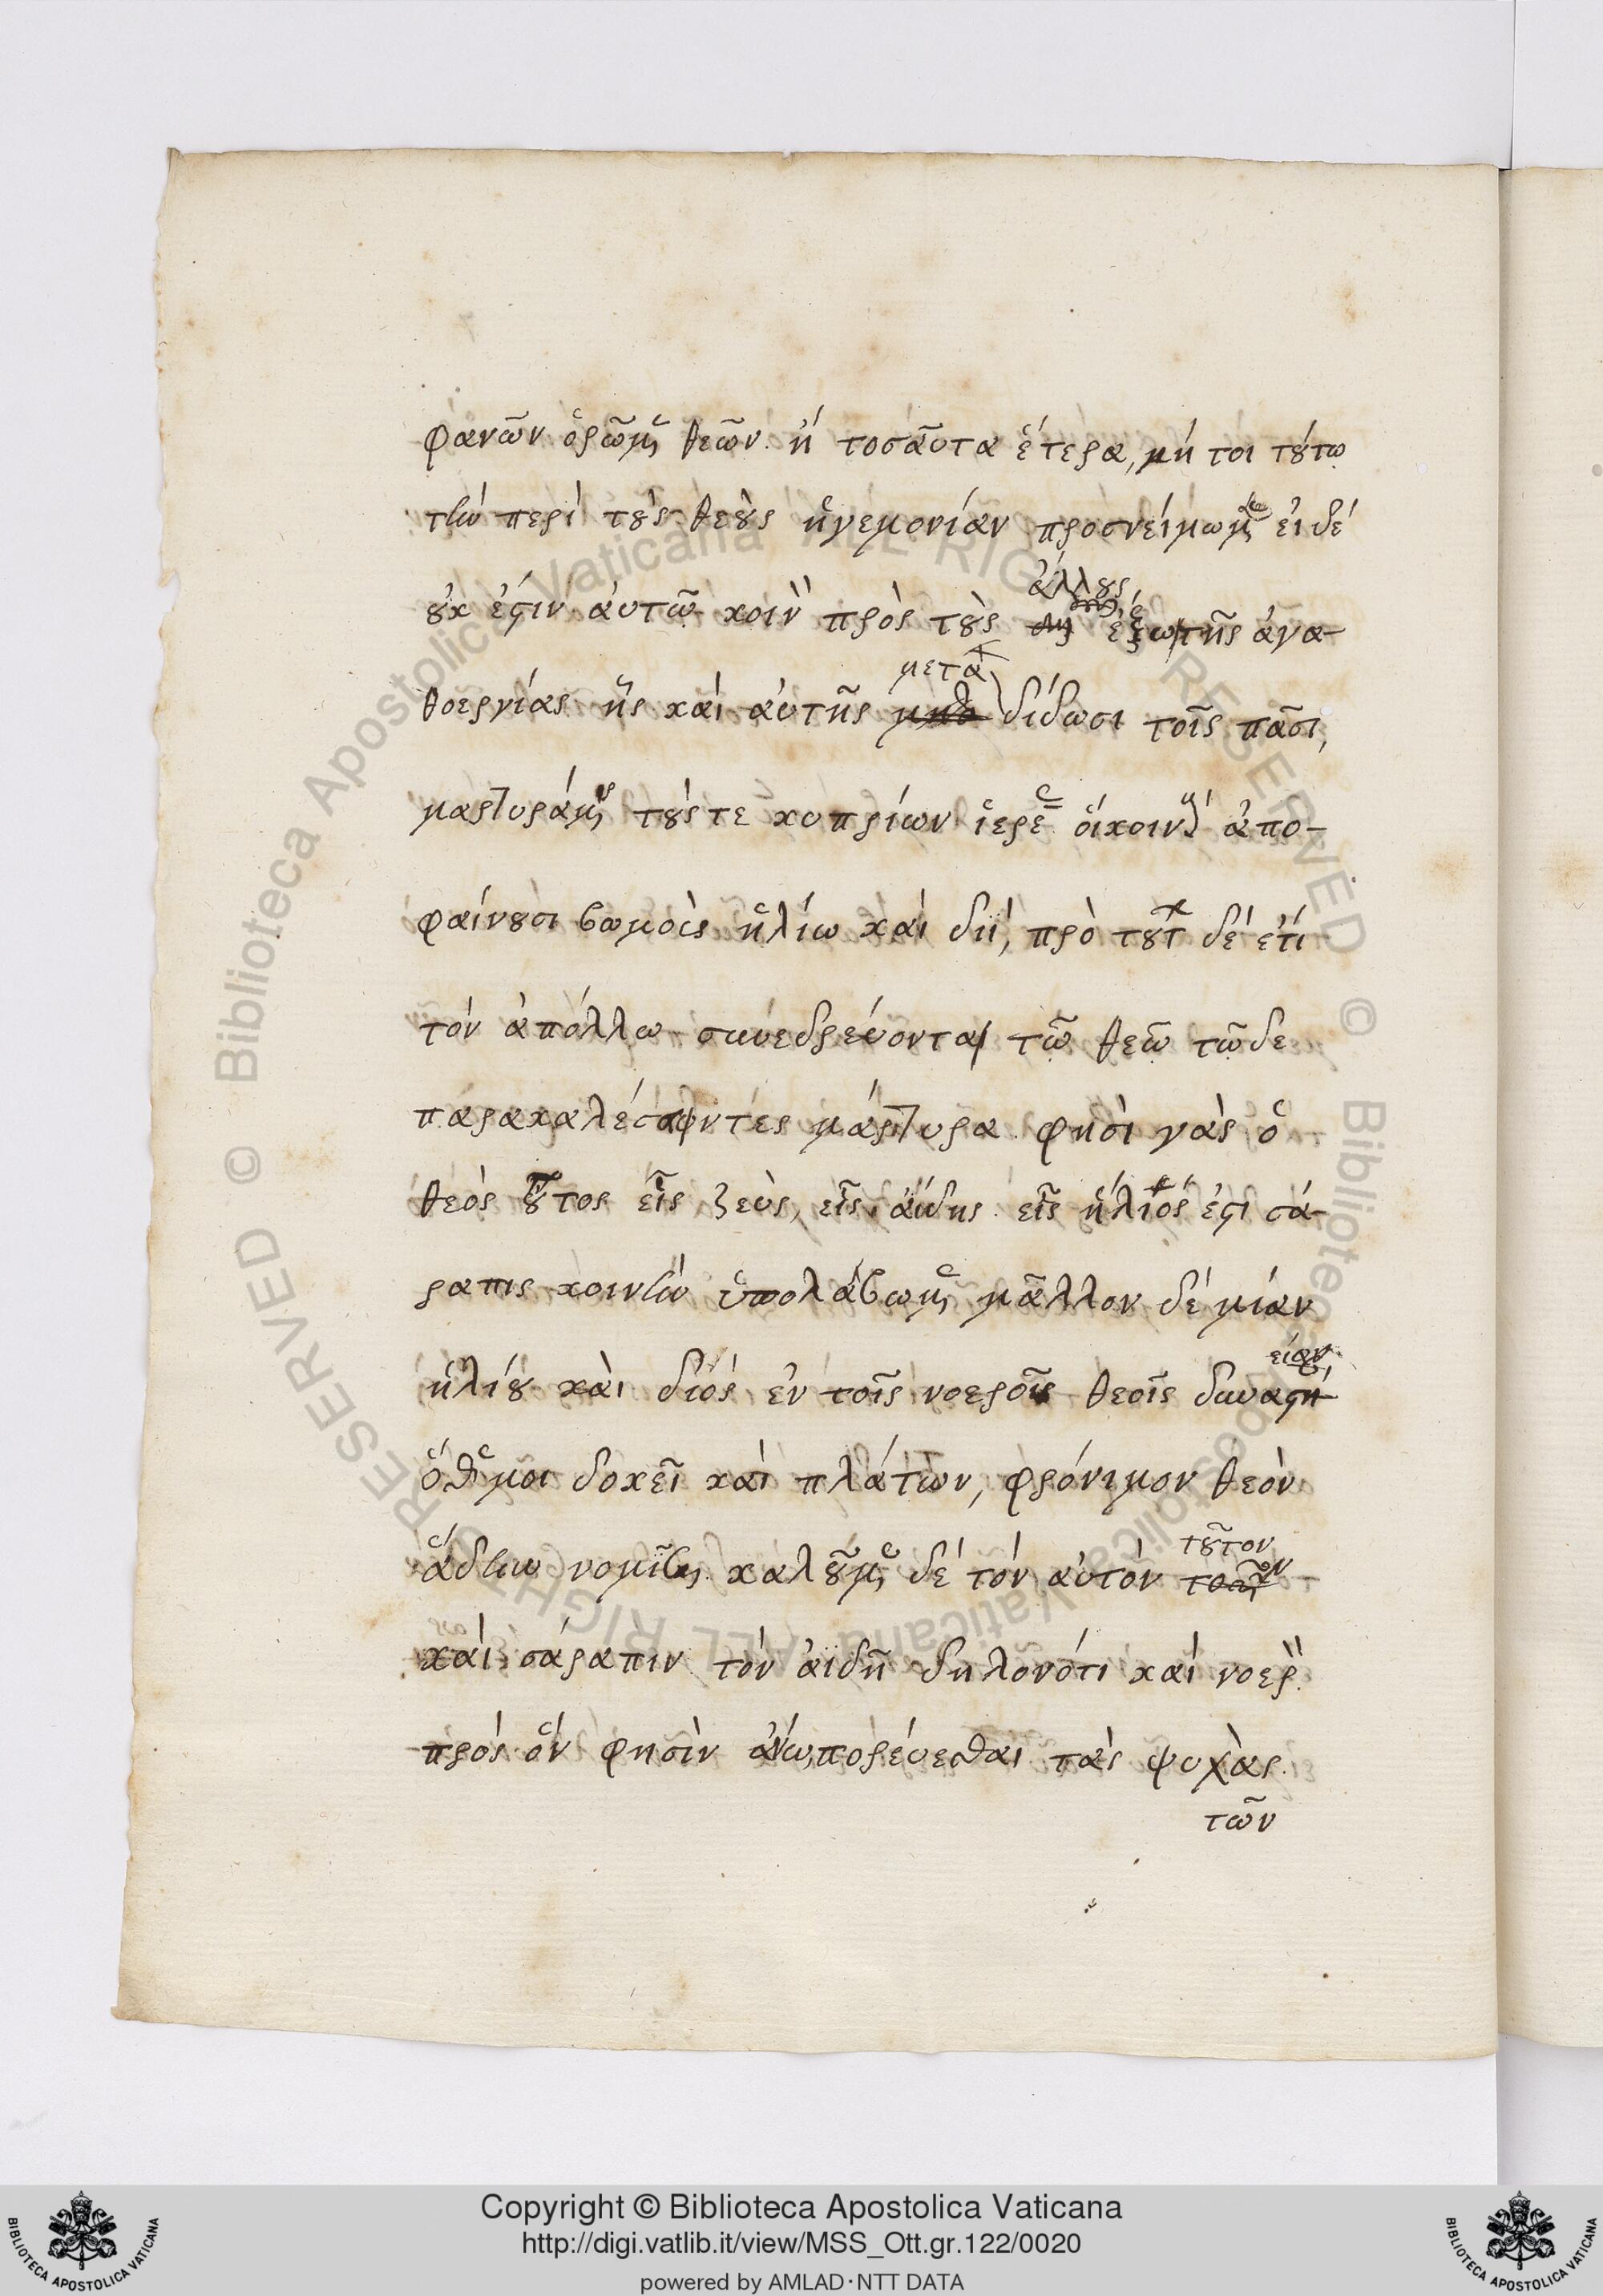 φανῶν ὁρῶμεν θεῶν. ἢ τοσαῦτα ἕτερα, μή τοι τούτῳ
τὴν περὶ τοὺς θεοὺς ἡγεμονίαν προσνείμωμεν εἰ δέ
οὐκ ἐστιν αὐτῷ κοινὸν πρὸς τοὺς ἄλλους ἔξω τῆς ἀγα-
θοεργίας ἧς καὶ αὐτῆς μεταδίδωσι τοῖς πᾶσι,
μαρτυράμενος τούς τε κυπρίων ἱερέας οἳ κοινοὺς ἀπο-
φαίνουσι βωμοὶς ἡλίω καὶ διΐ, πρὸ τούτων δὲ ἔτι
τὸν ἀπόλλω συνεδρεύοντα τῷ θεῷ τῷδε
παρακαλέσαντες μάρτυρα. φησὶ γὰρ ὁ
θεὸς οὗτος εἷς ζεὺς, εἷς ἀΐδης. εἷς ἥλιός ἐστι σά-
ραπις κοινὴν ὑπολάβωμεν μᾶλλον δὲ μίαν
ἡλίου καὶ διός ἐν τοῖς νοεροῖς θεοῖς δυναστείαν,
ὅθεν μοι δοκεῖ καὶ πλάτων, φρόνιμον θεὸν
ᾅδην νομίσαι. καλοῦμεν δὲ τὸν αὐτὸν τοῦτον
καὶ σάραπιν τὸν ἀϊδῆ δηλονότι καὶ νοερὸν
πρὸς ὅν φησὶν ἄνω πορεύεσθαι τὰς ψυχὰς
τῶν
Copyright © Biblioteca Apostolica Vaticana
http://digi.vatlib.it/view/MSS_Ott.gr.122/0020
powered by AMLAD·NTT DATA